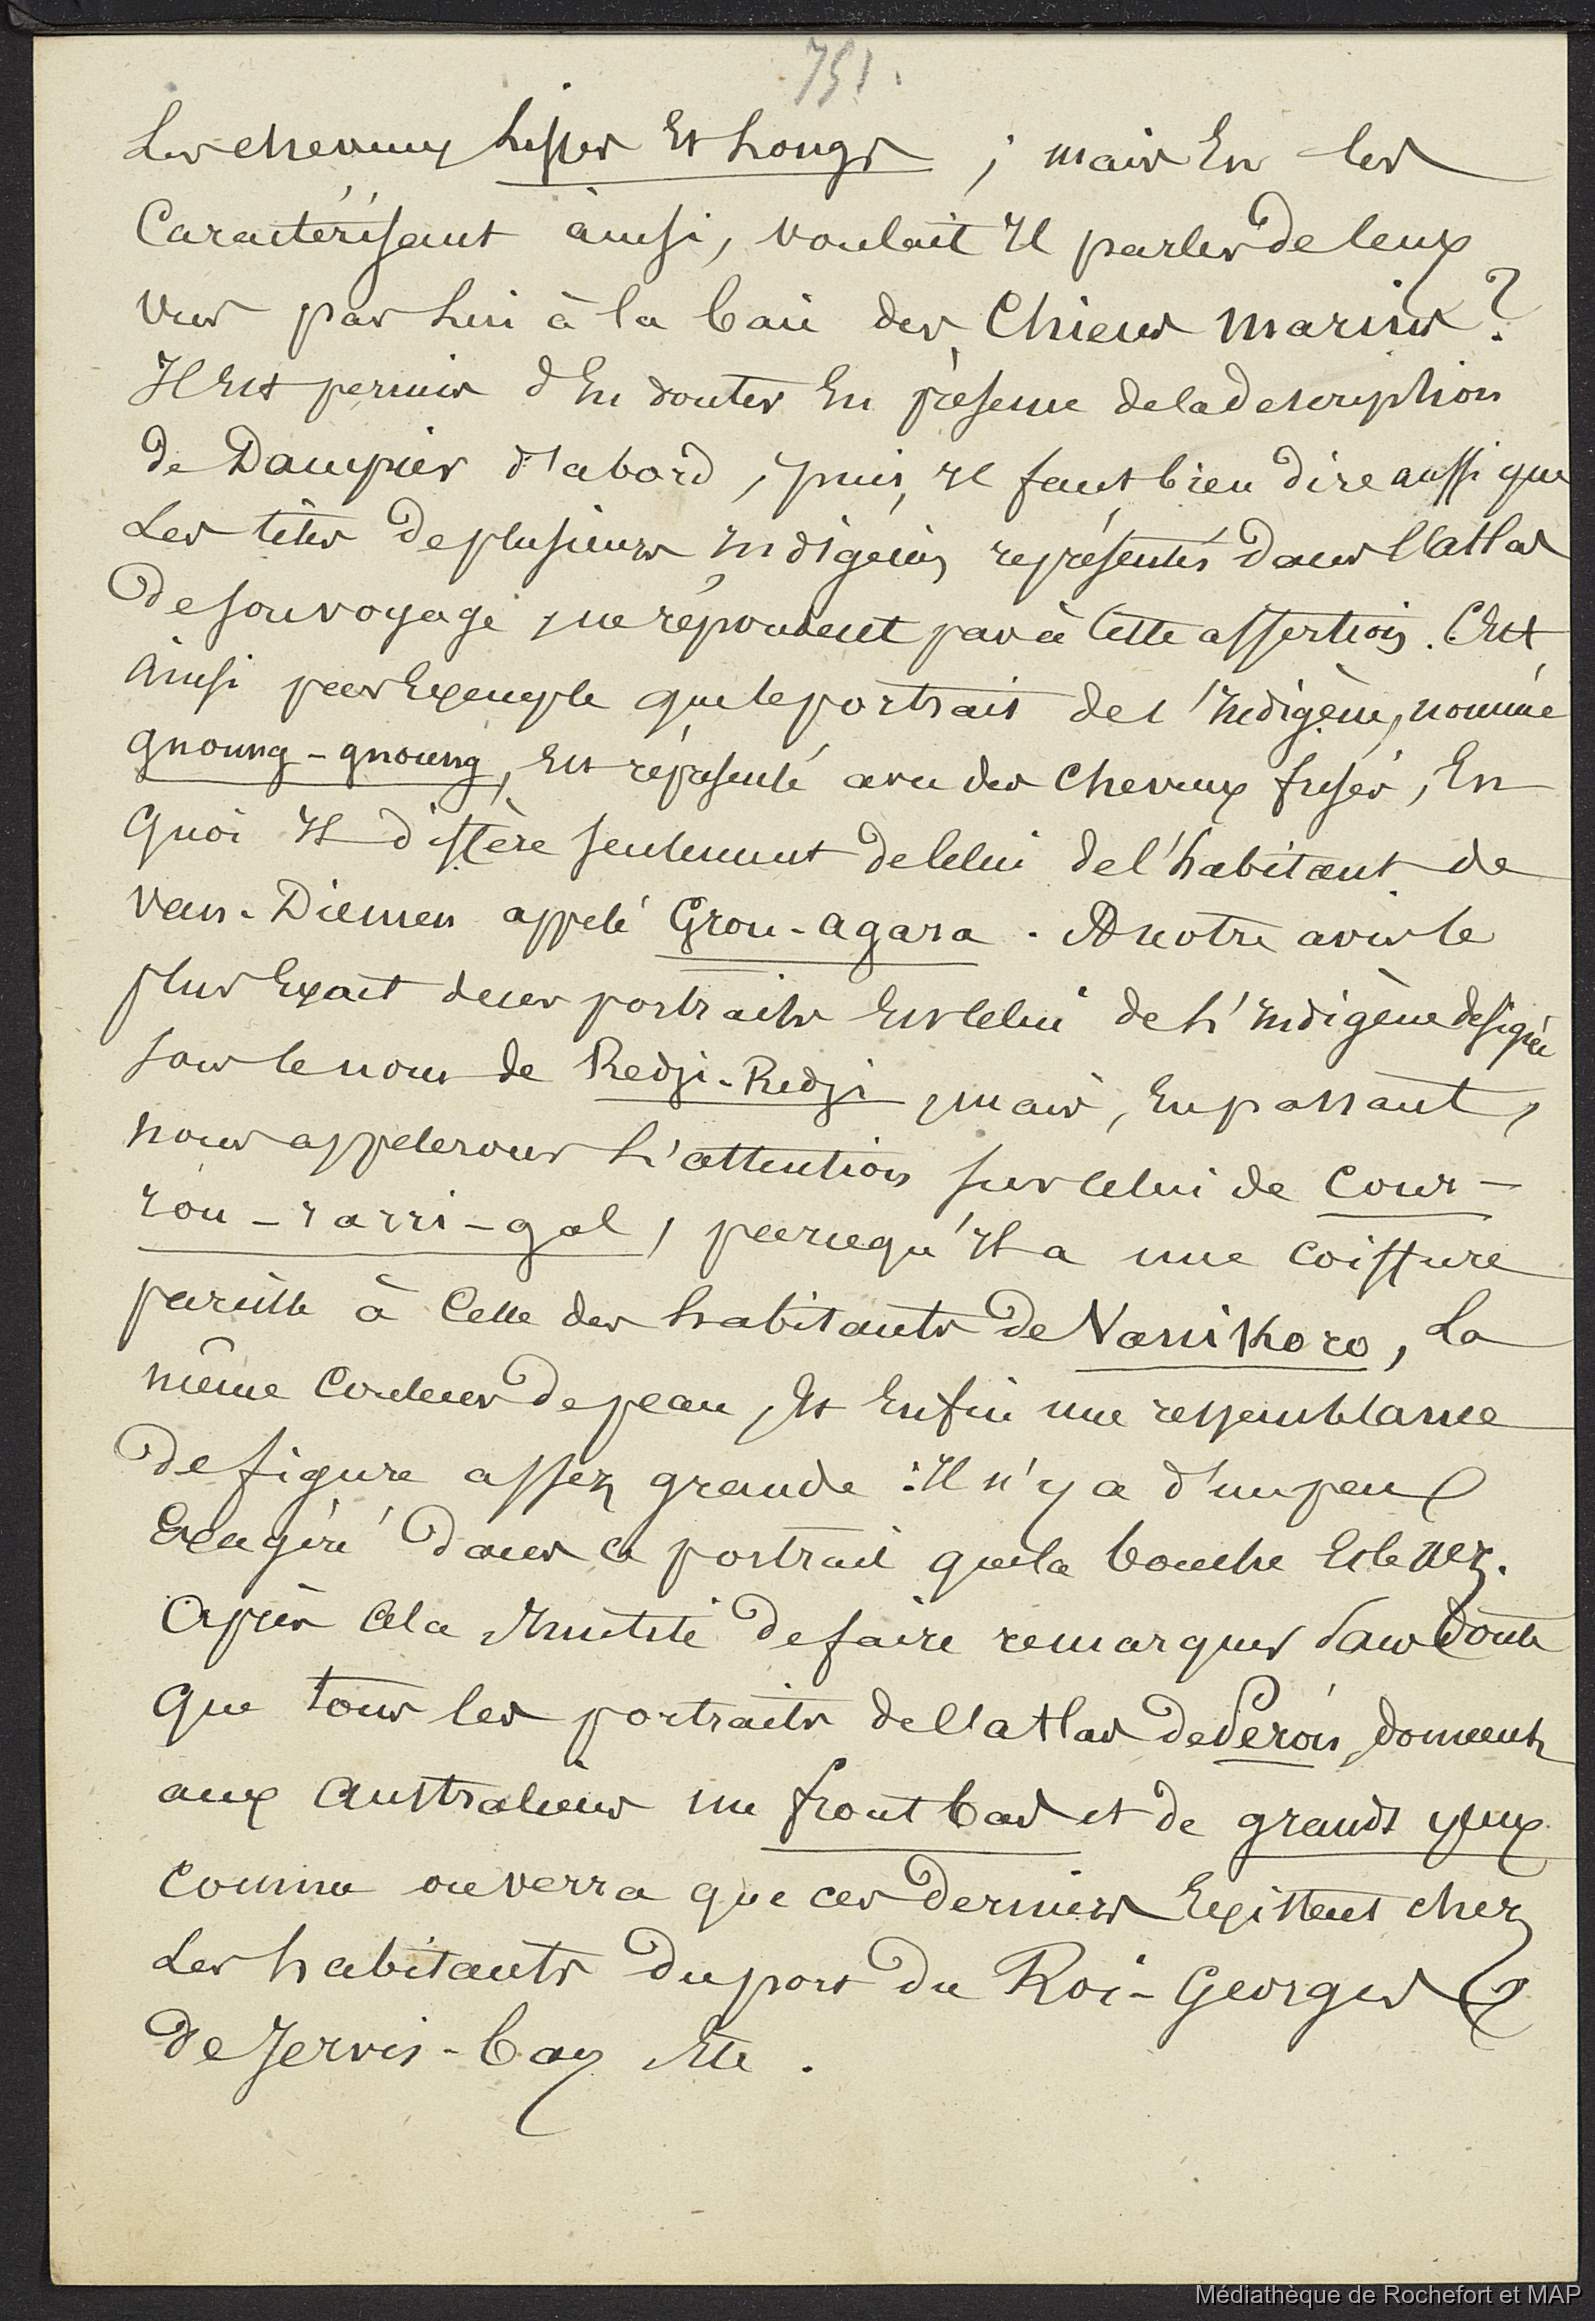 751.
Les cheveux lisses et longs ; mais en les
caractérisant ainsi, voulait il parler de ceux
vus par lui à la baie des Chiens marins ?
Il est permis d'en douter en présence de la description
de Dampier d'abord, puis, il faut bien dire aussi que
les têtes de plusieurs indigènes représentés dans l'atlas
de son voyage, ne répondent pas à cette assertion. C'est
ainsi par exemple que le portrait de l'indigène, nommé
gnoung-gnoung, est représenté avec des cheveux frisés, en
quoi il diffère seulement de celui de l'habitant de
Van-Diemen appelé Grou-agara. A notre avis le
plus exact de ces portraits est celui de l'indigène désigné
sous le nom de Redji-Redji, mais, en passant,
nous appelerons l'attention sur celui de Cour-
rou-rarri-gal, parcequ'il a une coiffure
pareille à celle des habitants de Vanikoro, la
même couleur de peau, et enfin une ressemblance
de figure assez grande : Il n'y a d'un peu
exagéré dans ce portrait que la bouche et le nez.
Après cela inutile de faire remarquer sans doute
que tous les portraits de l'atlas de Péron, donnent
aux Australiens un front bas et de grands yeux
comme on verra que ces derniers existent chez
les habitants du port du Roi-Georges &
de Jervis-bay etc.
Médiathèque de Rochefort et MAP